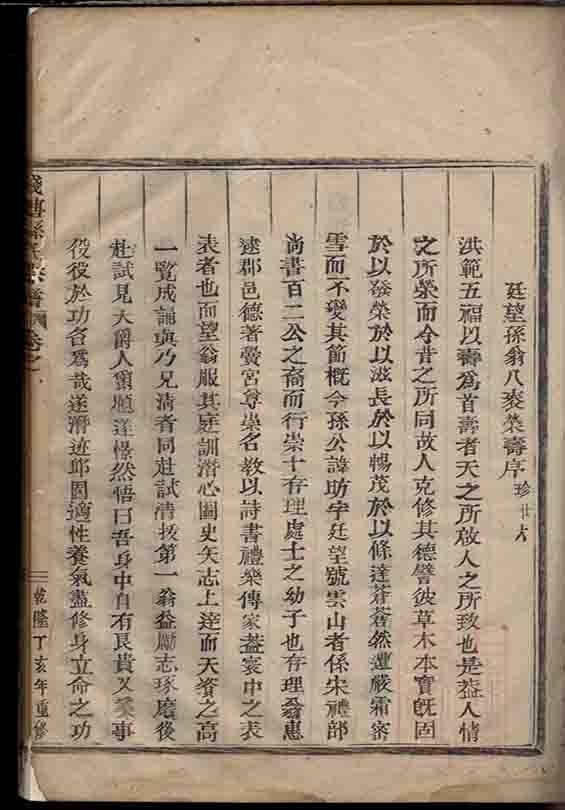 廷望孫翁八袠榮壽序 珍廿六
洪範五福以壽爲首壽者天之所啟人之所致也是葢人情
之所榮而今昔之所同故人克修其德譬彼草木本實旣固
於以發榮於以滋長於以暢茂於以條達蒼蒼然遭嚴霜密
雪而不變其節概今孫公諱助字廷望號雲山者係宋禮部
尚書百二公之裔而行崇十存理處士之幼子也存理翁惠
逮郡邑德著黌宮尊崇名教以詩書禮樂傳家葢寰中之表
表者也而望翁服其庭訓潛心圖史矢志上達而天資之高
一覽成誦與乃兄清者同赴試清拔第一翁益勵志琢磨後
赴試見大爵人 遂憬然悟曰吾身中自有良貴又 事
役役於功名爲哉遂潛迹邱園適性養氣盡修身立命之功
孫氏宗譜 卷之
乾隆丁亥年重修